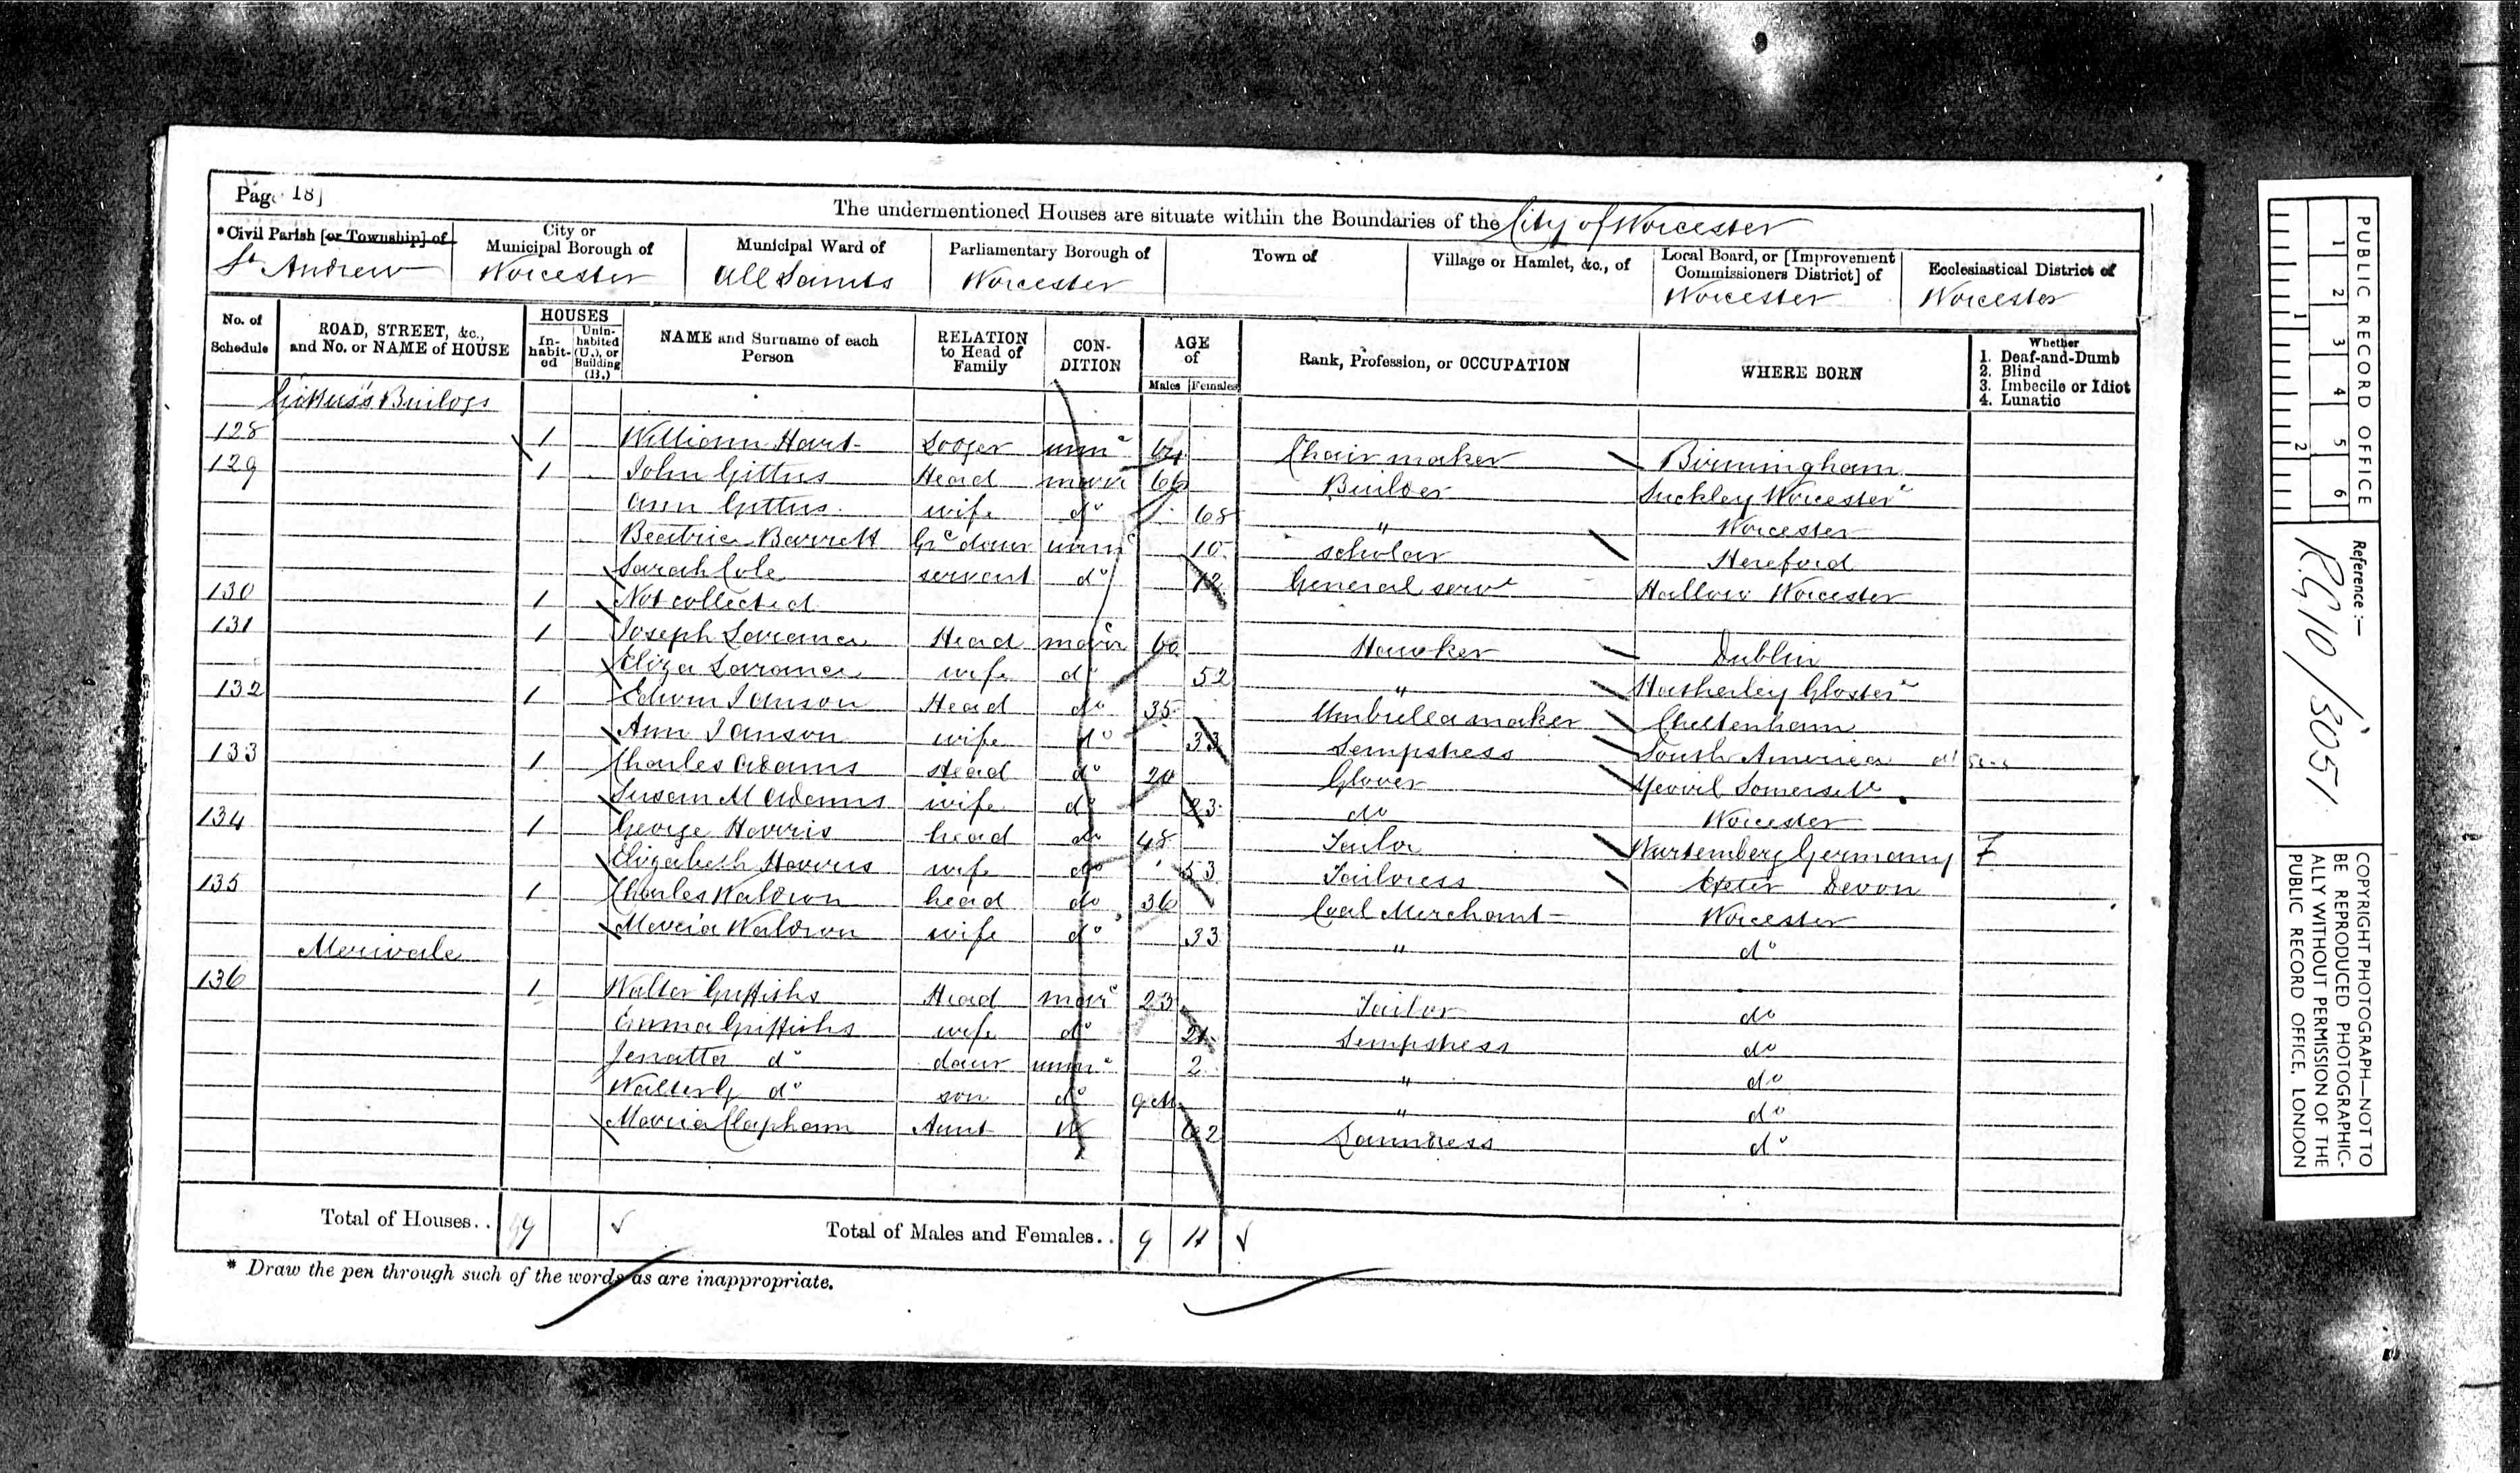 Page 18]
The undermentioned Houses are situate within the Boundaries of the City of Worcester
*Civil Parish [or Township] of
St Andrew
City or Municipal Borough of
Worcester
Municipal Ward of
All Saints
Parliamentary Borough of
Worcester
Town of
Village or Hamlet, &c., of
Local Board, or [Improvement Commissioners District] of
Worcester
Ecclesiastical District of
Worcester
No. of Schedule
ROAD, STREET, &c., and No. or NAME of HOUSE
HOUSES
In-habit-ed
Unin-habited (U.), or Building (B.)
NAME and Surname of each Person
RELATION to Head of Family
CON-DITION
AGE of
Males Females
Rank, Profession, or OCCUPATION
WHERE BORN
Whether
1. Deaf-and-Dumb
2. Blind
3. Imbecile or Idiot
4. Lunatic
Gittus's Buildgs
128 1 William Hart Lodger unme 64 Chair maker Birmingham
129 1 John Gittus Head marr 66 Builder Suckley Worcester
Ann Gittus wife do 68 " Worcester
Beatrice Barrett Grd daur unm 10 scholar Hereford
Sarah Cole servant do 12 General servt Hallow Worcester
130 1 Not collected
131 1 Joseph Larance Head marr 60 Hawker Dublin
Eliza Larance wife do 52 " Hatherley Gloster
132 1 Edwin Janson Head do 35 Umbrella maker Cheltenham
Ann Janson wife do 33 Sempstress South America at Sea
133 1 Charles Adams Head do 20 Glover Yeovil Somerset
Susan M Adams wife do 23 do Worcester
134 1 George Harris head do 48 Tailor Wurtemberg Germany 7
Elizabeth Harris wife do 53 Tailoress Exeter Devon
135 1 Charles Waldron head do 36 Coal Merchant Worcester
Maria Waldron wife do 33 " do
Merivale
136 1 Walter Griffiths Head marr 23 Tailor do
Emma Griffiths wife do 21 Sempstress do
Jenatta do daur unm 2 " do
Walter G do son do 9 M " do
Maria Clapham Aunt W 62 Laundress do
Total of Houses.. 9
Total of Males and Females.. 9 11
* Draw the pen through such of the words as are inappropriate.
PUBLIC RECORD OFFICE
1 2 3 4 5 6
1 2
Reference :—
R.G.10/3051
COPYRIGHT PHOTOGRAPH—NOT TO BE REPRODUCED PHOTOGRAPHIC-ALLY WITHOUT PERMISSION OF THE PUBLIC RECORD OFFICE, LONDON